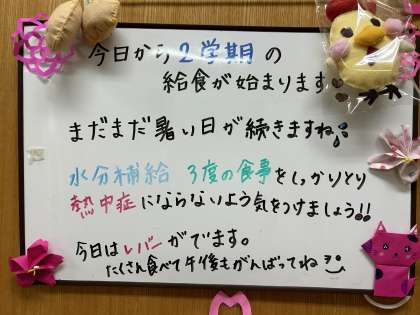 今日から2学期の
給食が始まります。
まだまだ暑い日が続きますね
水分補給 3度の食事をしっかりとり
熱中症にならないよう気をつけましょう!!
今日はレバーがでます。
たくさん食べて午後もがんばってね